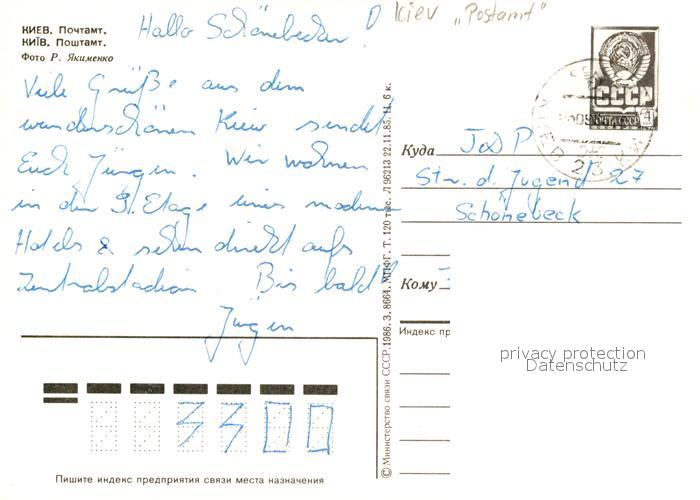 КИЕВ. Почтамт.
КИЇВ. Поштамт.
Фото Р. Якименко
Kiev „Postamt"
Hallo Schönebecker!
Viele Grüße aus dem
wunderschönen Kiew sendet
Euch Jürgen. Wir wohnen
in der 9. Etage eines modernen
Hotels & sehen direkt aufs
Zentralstadion. Bis bald!
Jürgen
СССР
ПОЧТА СССР
4
Куда
Str. d. Jugend 27
Schönebeck
Кому
Индекс пр
privacy protection
Datenschutz
© Министерство связи СССР. 1986. З. 8664. МПФГ. Т. 120 тыс. Л 96213 22.11.85. Ц. 6 к.
Пишите индекс предприятия связи места назначения